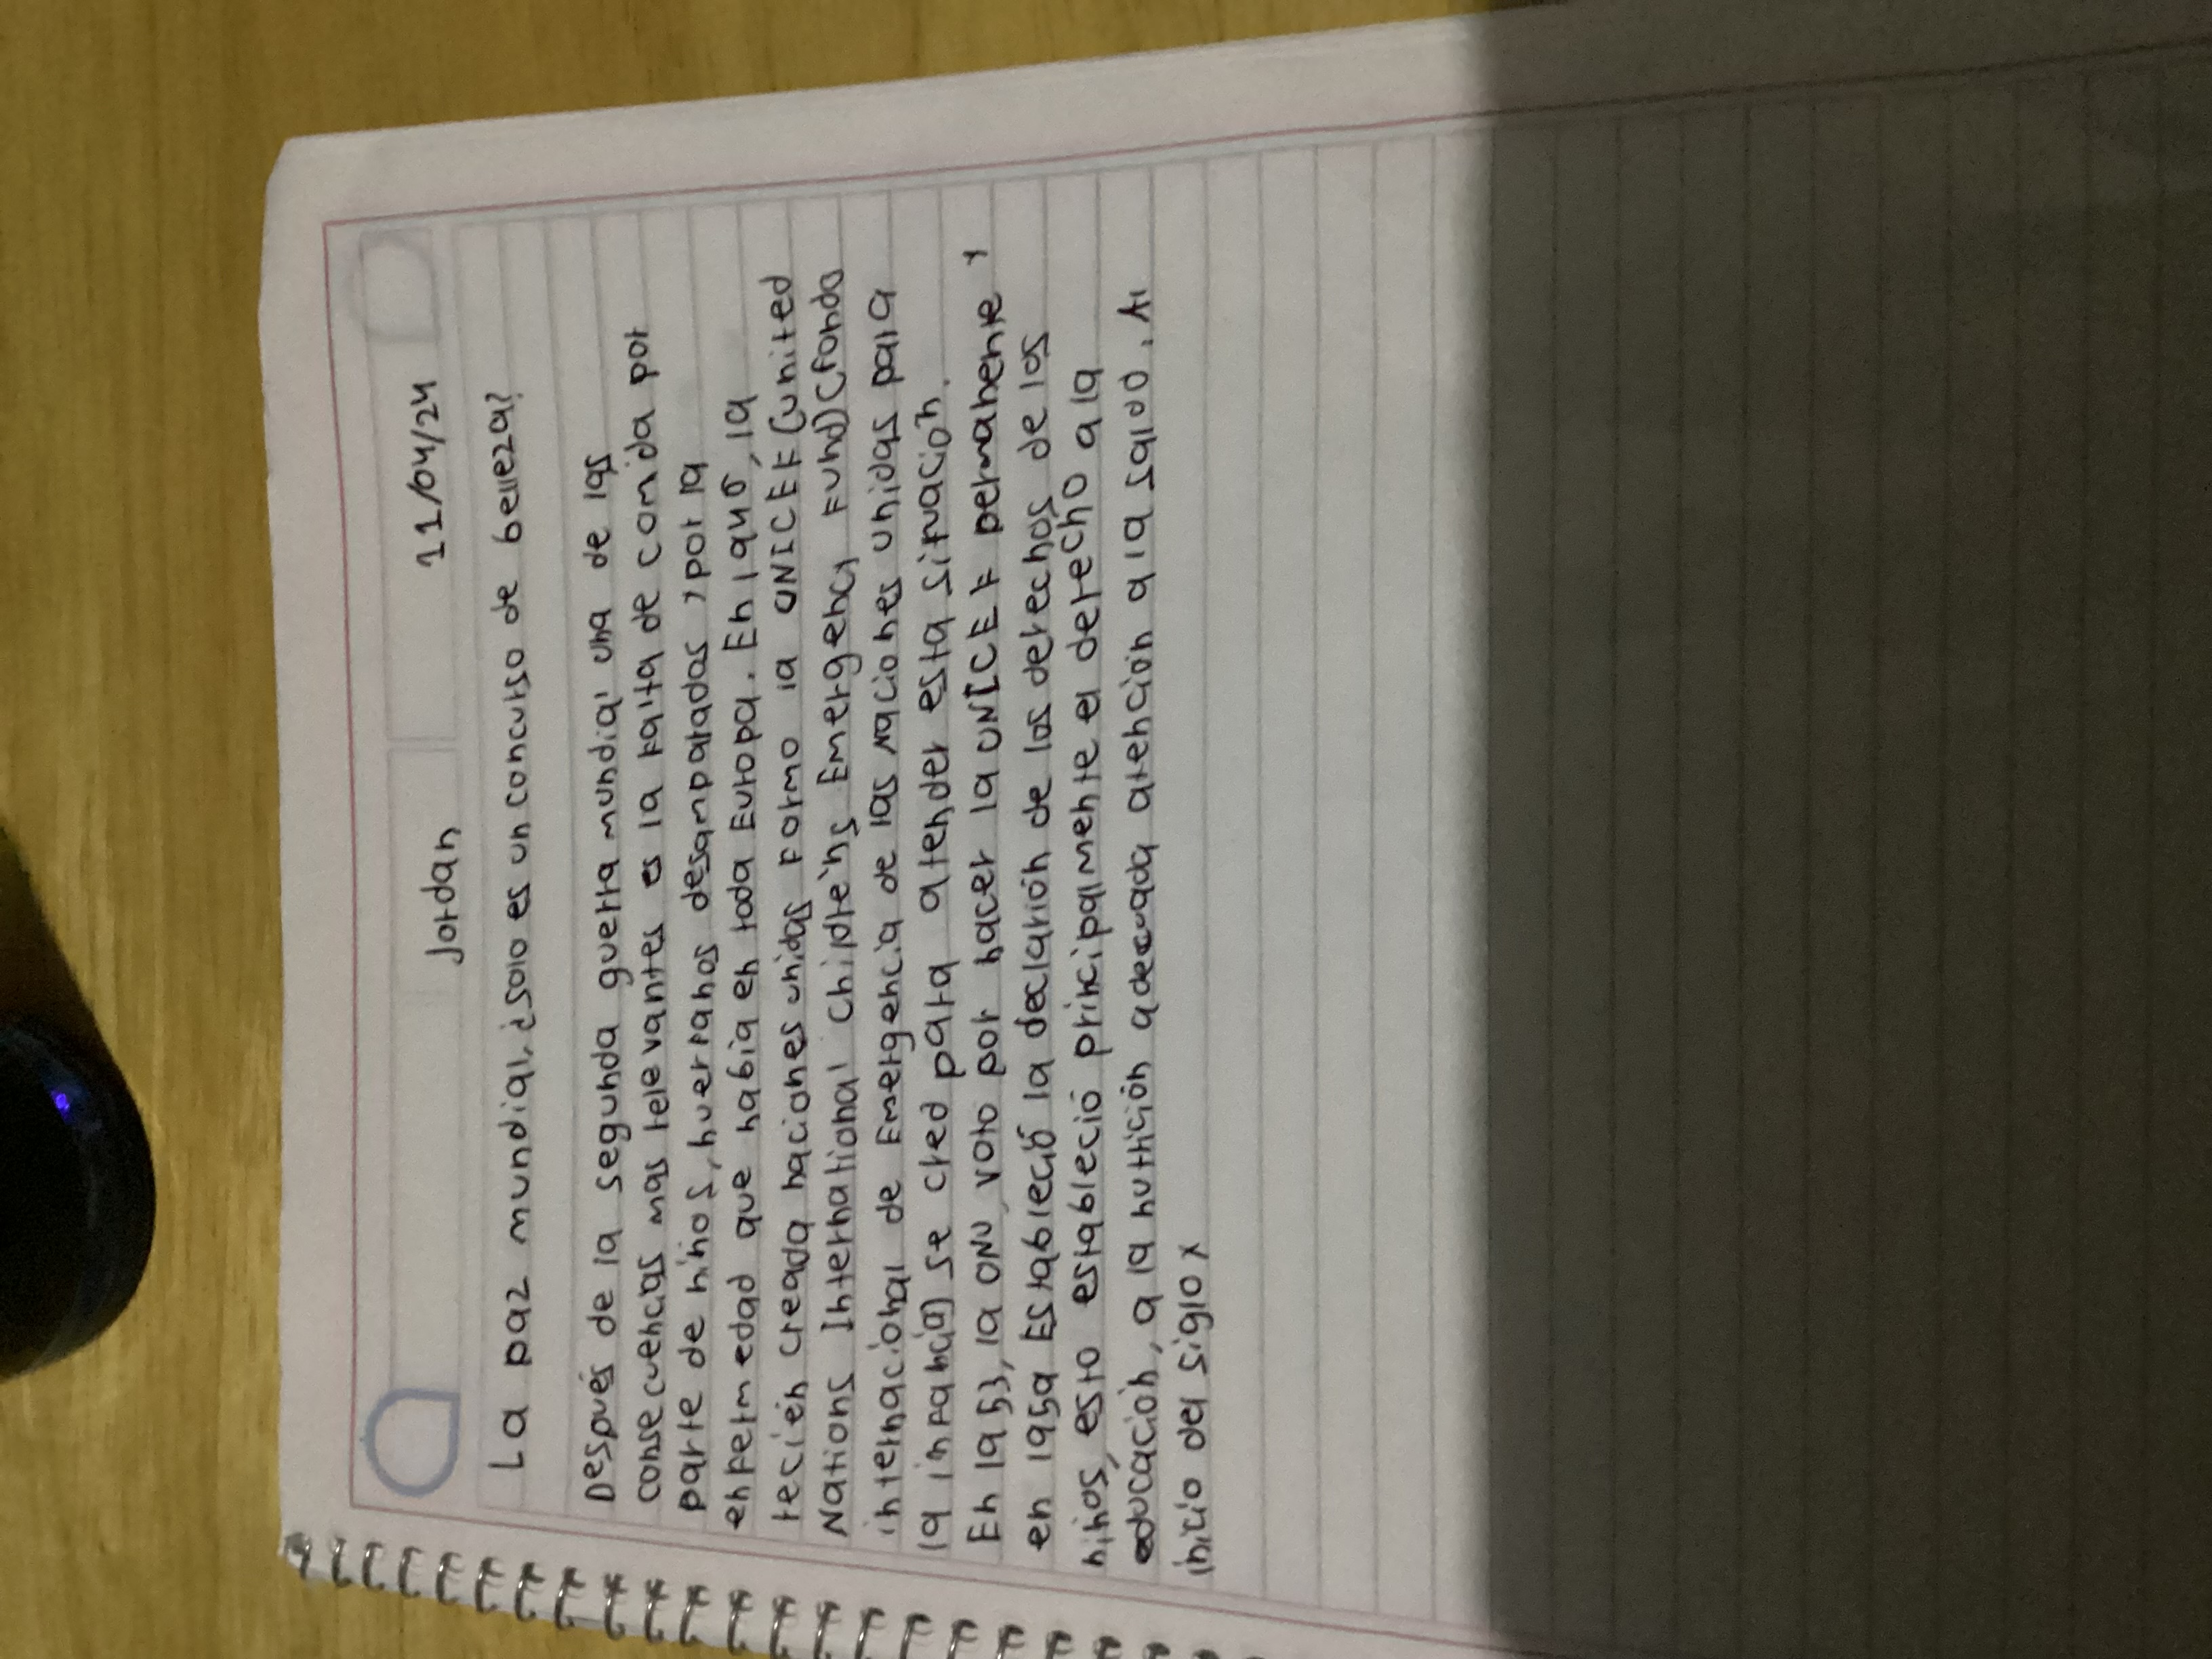 Jordan 11/04/24
La paz mundial, ¿solo es un concurso de belleza?
Después de la segunda guerra mundial una de las
consecuencias mas relevantes es la falta de comida por
parte de niños, huerfanos desamparados, por la
enfermedad que habia en toda Europa. En 1946, la
recién creada naciones unidas formo la UNICEF (United
Nations International Children's Emergency Fund) (fondo
internacional de Emergencia de las naciones unidas para
la infancia) se creo para atender esta situación.
En 1953, la ONU, voto por hacer la UNICEF permanente y
en 1959 Estableció la declarión de los derechos de los
niños, esto estableció principalmente el derecho a la
educación, a la nutrición adecuada atención a la salud. Al
inicio del siglo x